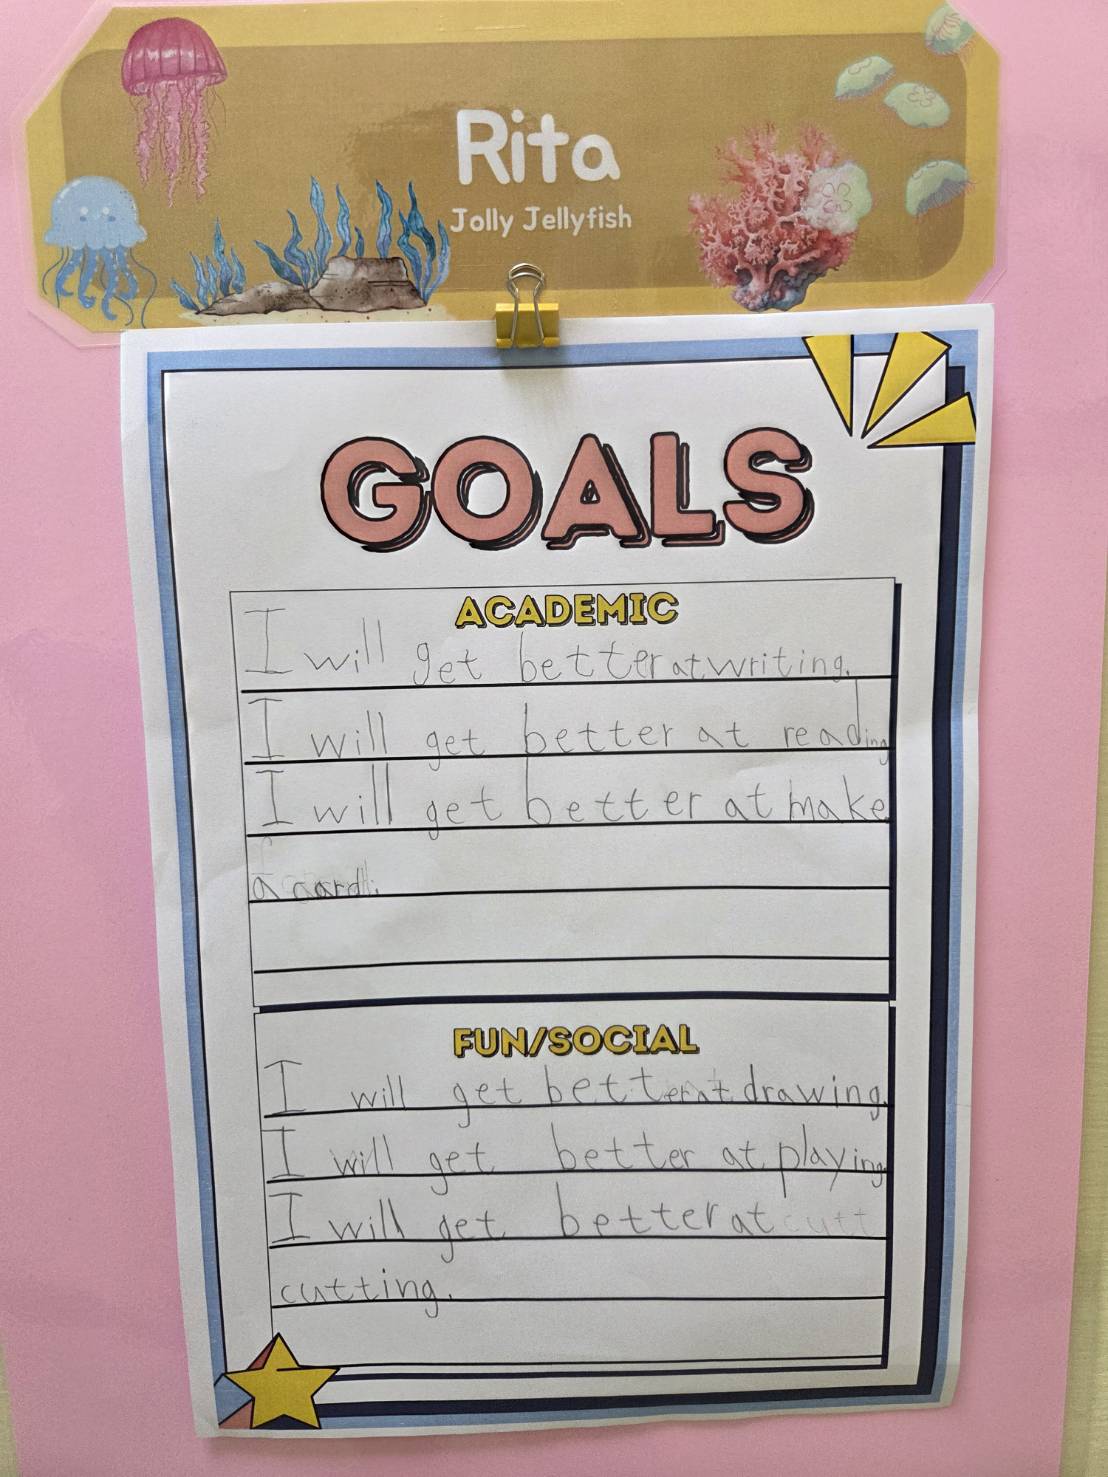 Rita
Jolly Jellyfish
GOALS
ACADEMIC
I will get better at writing.
I will get better at reading
I will get better at make
a card.
FUN/SOCIAL
I will get better at drawing.
I will get better at playing
I will get better at cutt
cutting.